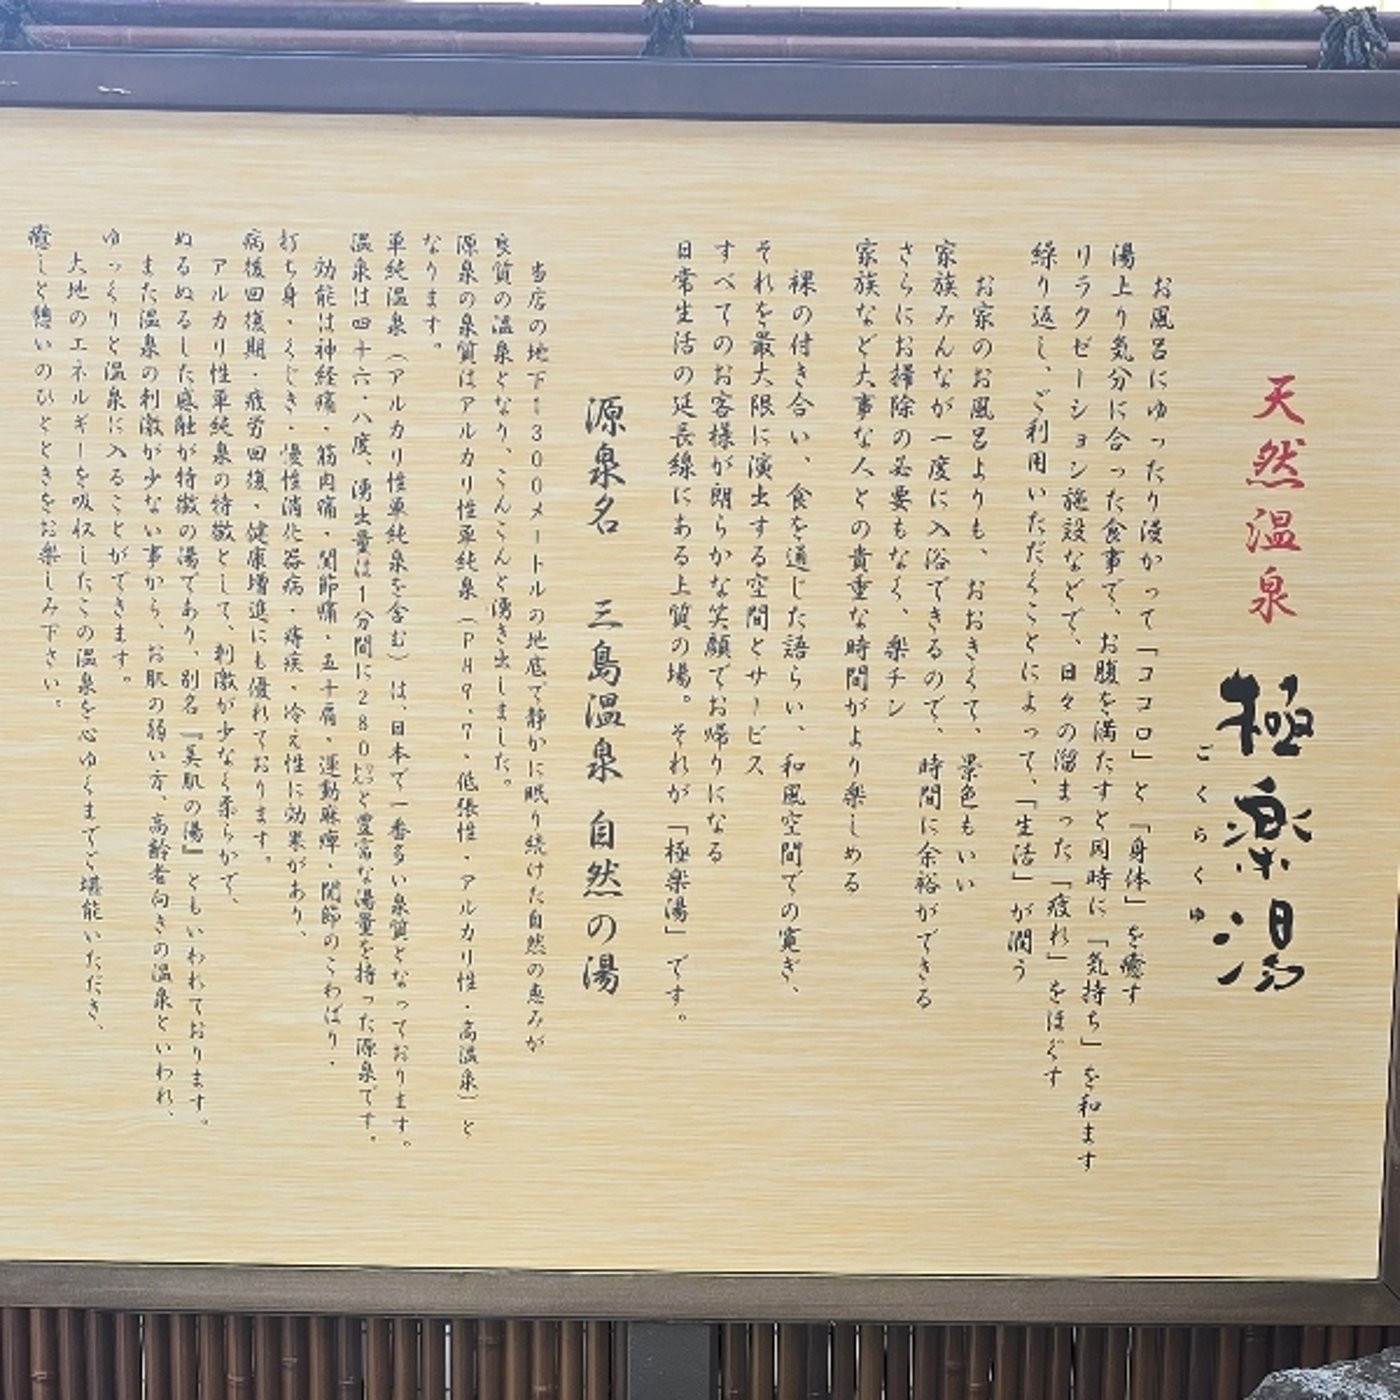 天然温泉 極楽湯
ごくらくゆ
お風呂にゆったり浸かって「ココロ」と「身体」を癒す
湯上り気分に合った食事で、お腹を満たすと同時に「気持ち」を和ます
リラクゼーション施設などで、日々の溜まった「疲れ」をほぐす
繰り返し、ご利用いただくことによって、「生活」が潤う
お家のお風呂よりも、おおきくて、景色もいい
家族みんなが一度に入浴できるので、時間に余裕ができる
さらにお掃除の必要もなく、楽チン
家族など大事な人との貴重な時間がより楽しめる
裸の付き合い、食を通じた語らい、和風空間での寛ぎ、
それを最大限に演出する空間とサービス
すべてのお客様が朗らかな笑顔でお帰りになる
日常生活の延長線にある上質の場。それが「極楽湯」です。
源泉名 三島温泉 自然の湯
当店の地下1300メートルの地底で静かに眠り続けた自然の恵みが
良質の温泉となり、こんこんと湧き出しました。
源泉の泉質はアルカリ性単純泉（PH9.7、低張性・アルカリ性・高温泉）と
なります。
単純温泉（アルカリ性単純泉を含む）は、日本で一番多い泉質となっております。
温泉は四十六・八度、湧出量は1分間に280㍑と豊富な湯量を持った源泉です。
効能は神経痛・筋肉痛・関節痛・五十肩・運動麻痺・関節のこわばり・
打ち身・くじき・慢性消化器病・痔疾・冷え性に効果があり、
病後回復期・疲労回復・健康増進にも優れております。
アルカリ性単純泉の特徴として、刺激が少なく柔らかで、
ぬるぬるした感触が特徴の湯であり、別名『美肌の湯』ともいわれております。
また温泉の刺激が少ない事から、お肌の弱い方、高齢者向きの温泉といわれ、
ゆっくりと温泉に入ることができます。
大地のエネルギーを吸収したこの温泉を心ゆくまでご堪能いただき、
癒しと憩いのひとときをお楽しみ下さい。